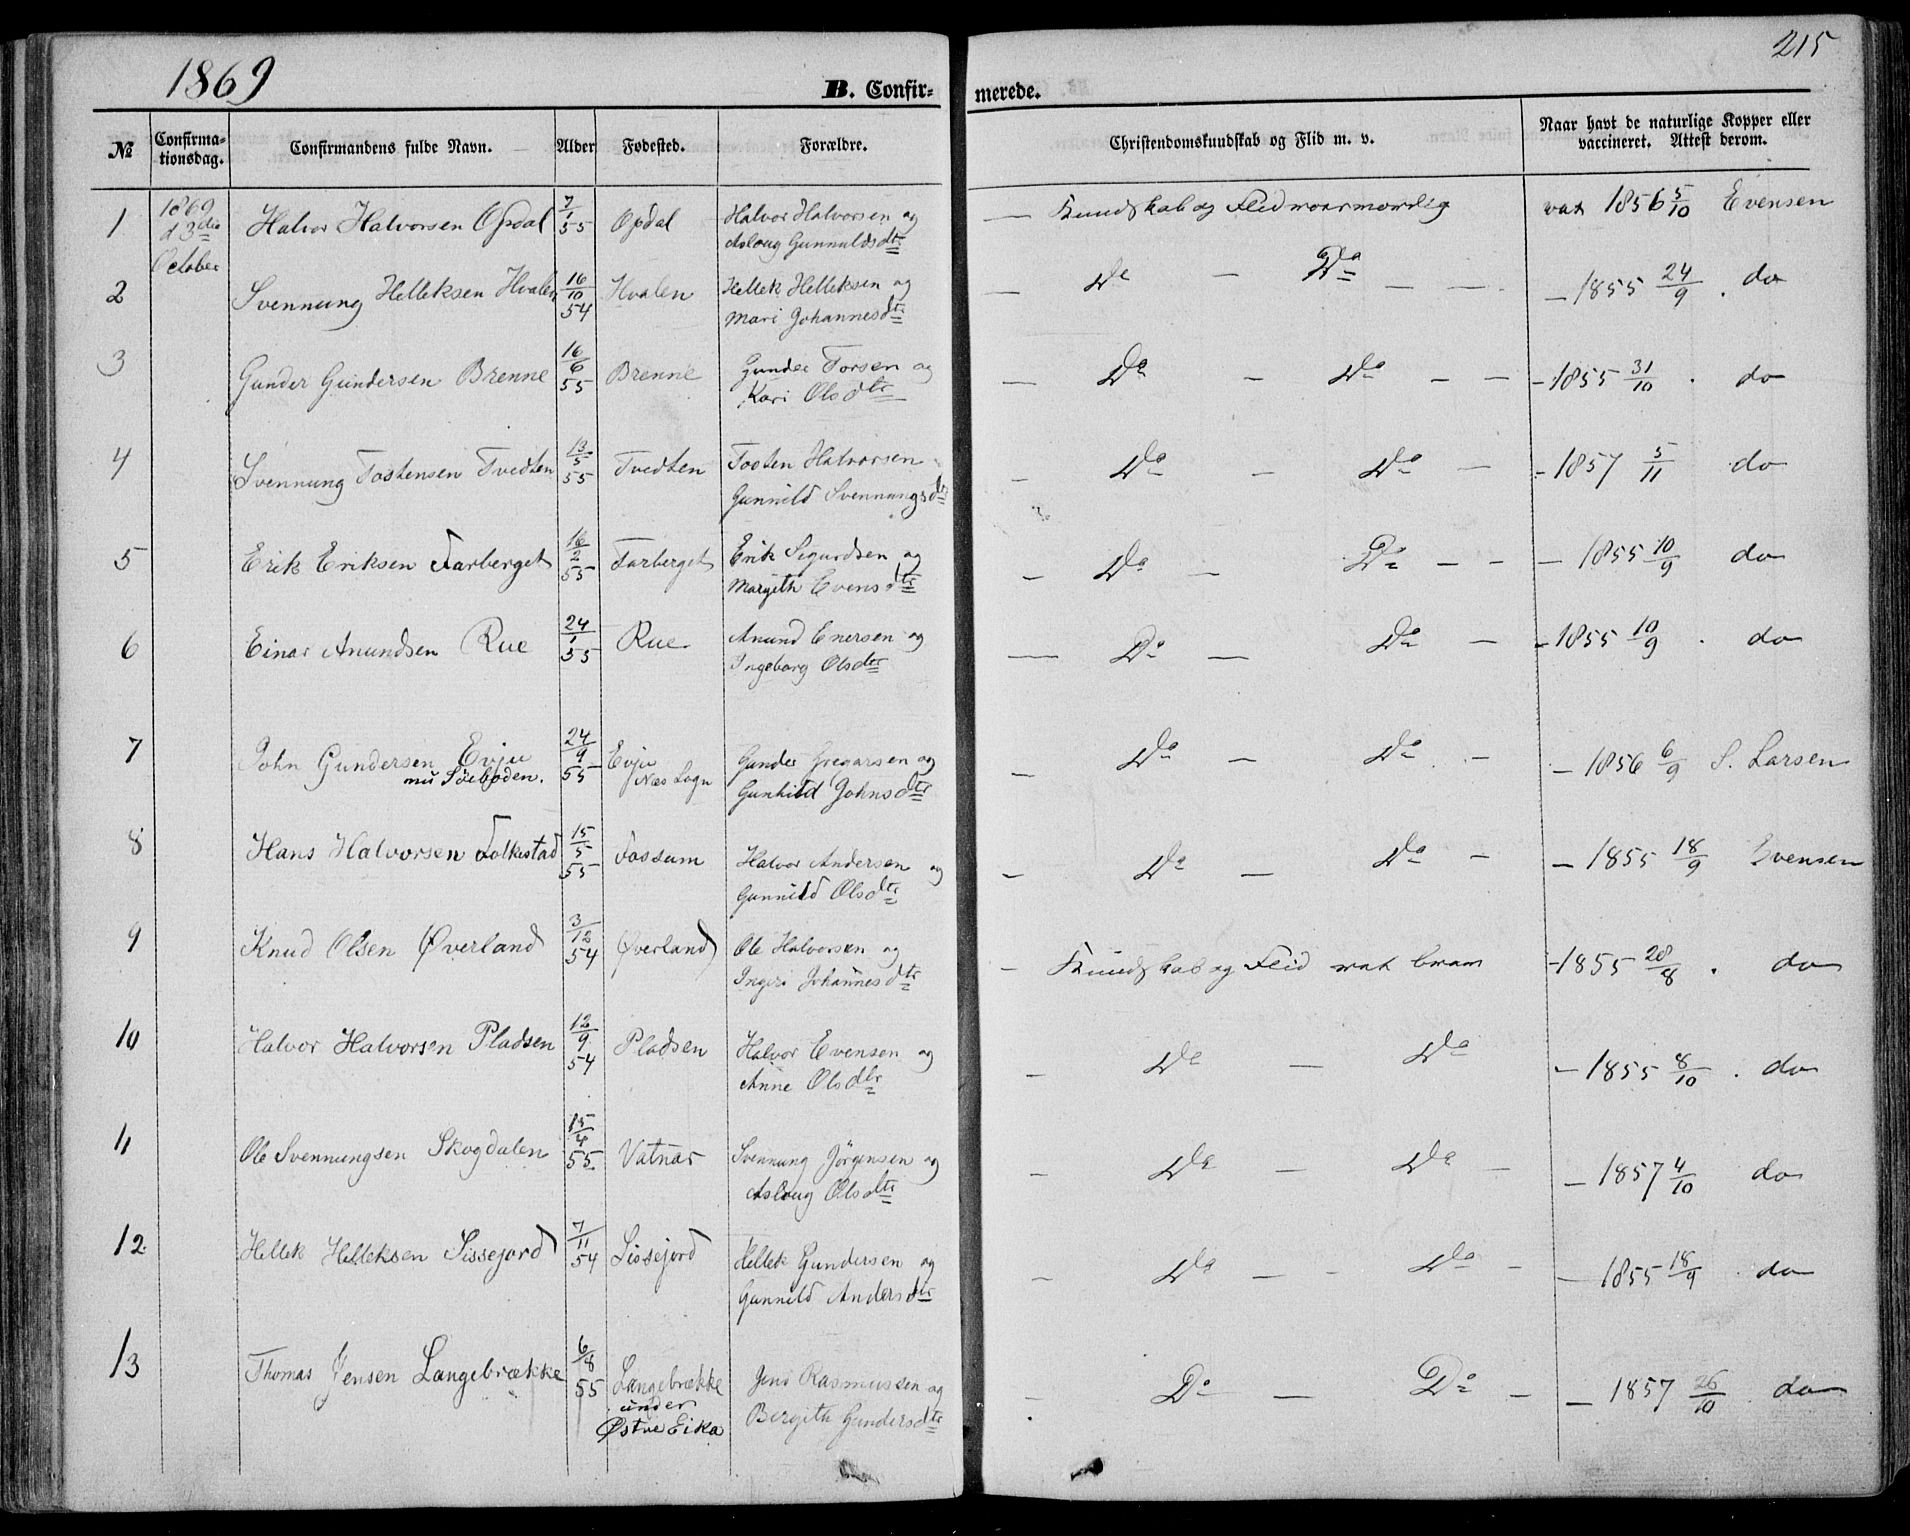 1869 B. Confirmerede. 215
№ Confirma-tionsdag. Confirmandens fulde Navn. Alder Fødested. Forældre. Christendomskundskab og Flid m. v. Naar havt de naturlige Kopper eller vaccineret. Attest derom.
1 1869 d 3die October Halvor Halvorsen Opdal 7/1 55 Opdal Halvor Halvorsen og Aslaug Gunnuldsdtr — Kundskab og Flid vaar mordig vax 1856 5/10 Evensen
2 Svennung Helleksen Hvalen 16/10 54 Hvalen Hellek Helleksen og Mari Johannesdtr — Do — Do — — — 1855 24/9 . do
3 Gunder Gundersen Brenne 16/6 55 Brenne Gunder Torsen og Kari Olsdtr — Do — Do — — - 1855 31/10 . do
4 Svennung Tostensen Tvedten 13/5 55 Tvedten Tosten Halvorsen Gunnild Svennungsdtr — Do — Do — - 1857 5/11 do
5 Erik Eriksen Farberget 16/2 55 Farberget Erik Sigurdsen og Margith Evensdtr — Do — Do — — — 1855 10/9 do
6 Einar Anundsen Rue 24/1 55 Rue Anund Enersen og Ingeborg Olsdtr — Do — Do — - 1855 10/9 . do
7 John Gundersen Evju nu Söebøden. 24/9 55 Evju Næs Sogn Gunder Gregarsen og Gunhild Johnsdtr — Do — Do — — 1856 6/9 S. Larsen
8 Hans Halvorsen Folkestad 15/5 55 Fossum Halvor Andersen og Gunnild Olsdtr — Do — Do — — 1855 18/9 Evensen
9 Knud Olsen Øverland 3/12 54 Øverland Ole Halvorsen og Ingeri Johannesdtr — Kundskab og Flid vat bram - 1855 28/8 . do
10 Halvor Halvorsen Pladsen 12/9 54 Pladsen Halvor Evensen og Anne Olsdtr — Do — Do — 1855 8/10 . do
11 Ole Svennungsen Skogdalen 15/4 55 Vatnar Svennung Jörgensen og Aslaug Olsdtr — Do — Do — — 1857 4/10 do
12 Hellek Helleksen Sissejord 7/11 54 Sissejord Hellek Gundersen og Gunnild Andersdtr — Do — — Do — — 1855 18/9 do
13 Thomas Jensen Langebrække 6/8 55 Langebrække under Østre Eika Jens Rasmussen og Bergith Gundersdtr — Do — Do — — 1857 26/10 do